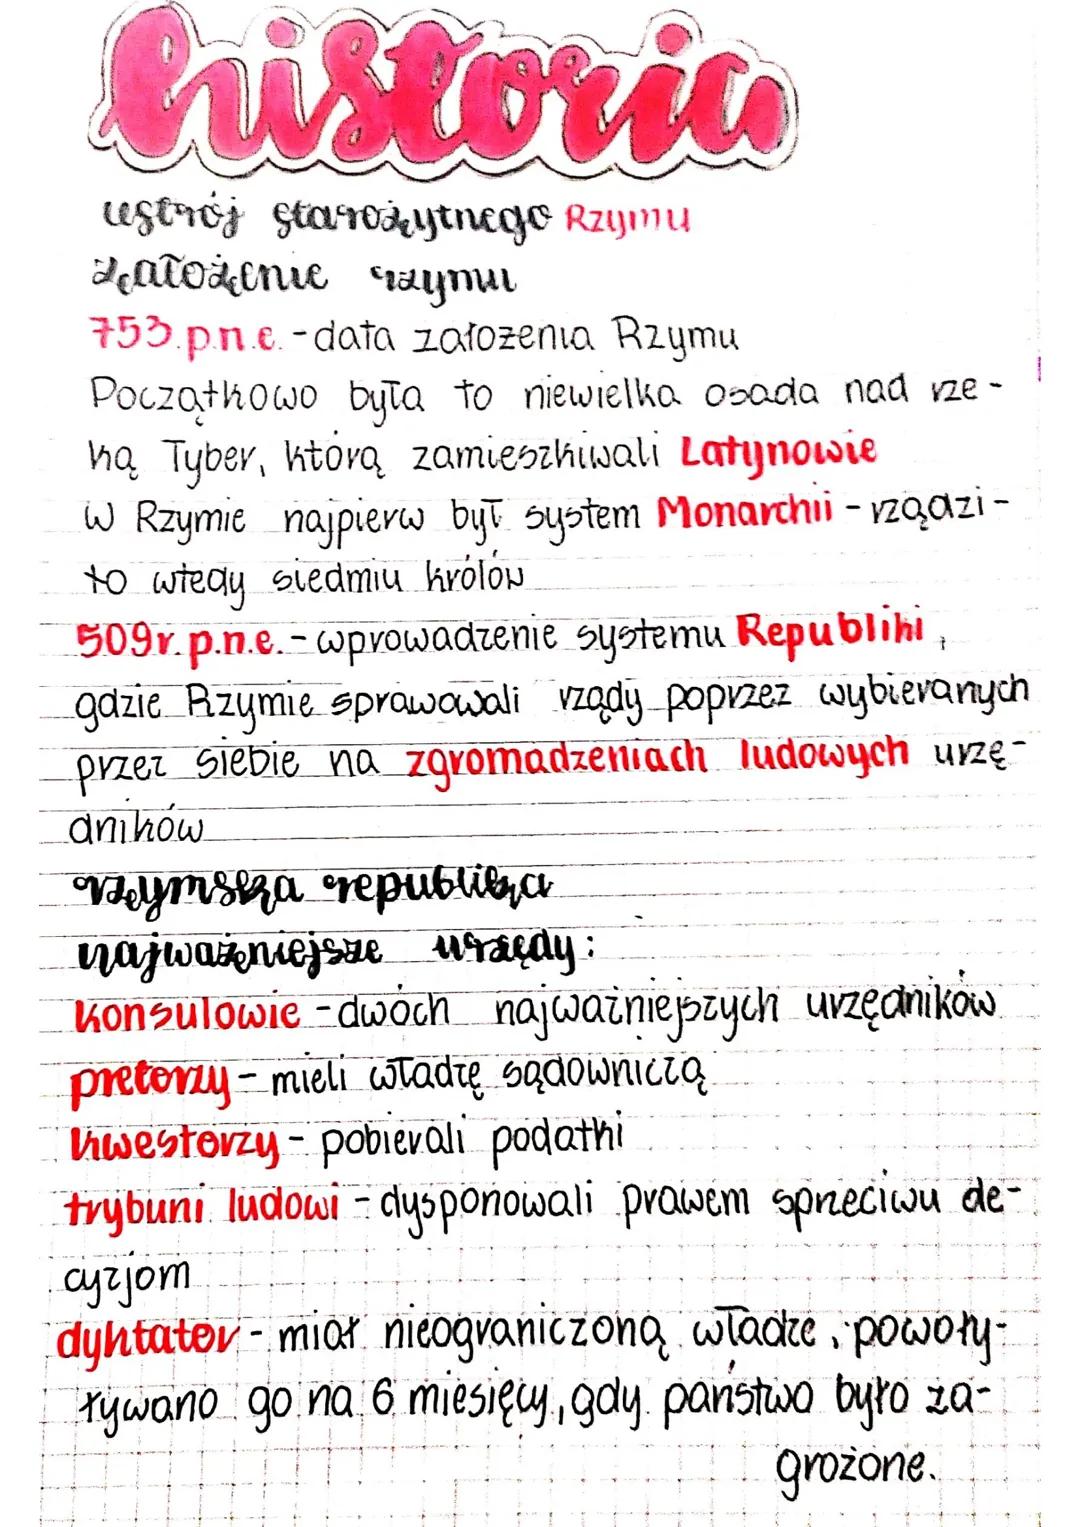 historia
ustrój starożytnego Rzymu
założenie rzymu
753.p.n.e. - data założenia Rzymu
Początkowo była to niewielka osada nad rze-
ką Tyber, którą zamieszkiwali Latynowie
W Rzymie najpierw był system Monarchii - rządzi-
ło wtedy siedmiu królów
509r. p.n.e. - wprowadzenie systemu Republiki,
gdzie Rzymie sprawowali rządy poprzez wybieranych
przez siebie na zgromadzeniach ludowych urzę-
dników
rzymska republika
najważniejsze urzędy:
konsulowie - dwóch najważniejszych urzędników
pretorzy - mieli władzę sądowniczą
kwestorzy - pobierali podatki
trybuni ludowi - dysponowali prawem sprzeciwu de-
cyzjom
dyktator - miał nieograniczoną władze, powoły-
ływano go na 6 miesięcy, gdy państwo było za-
grożone.